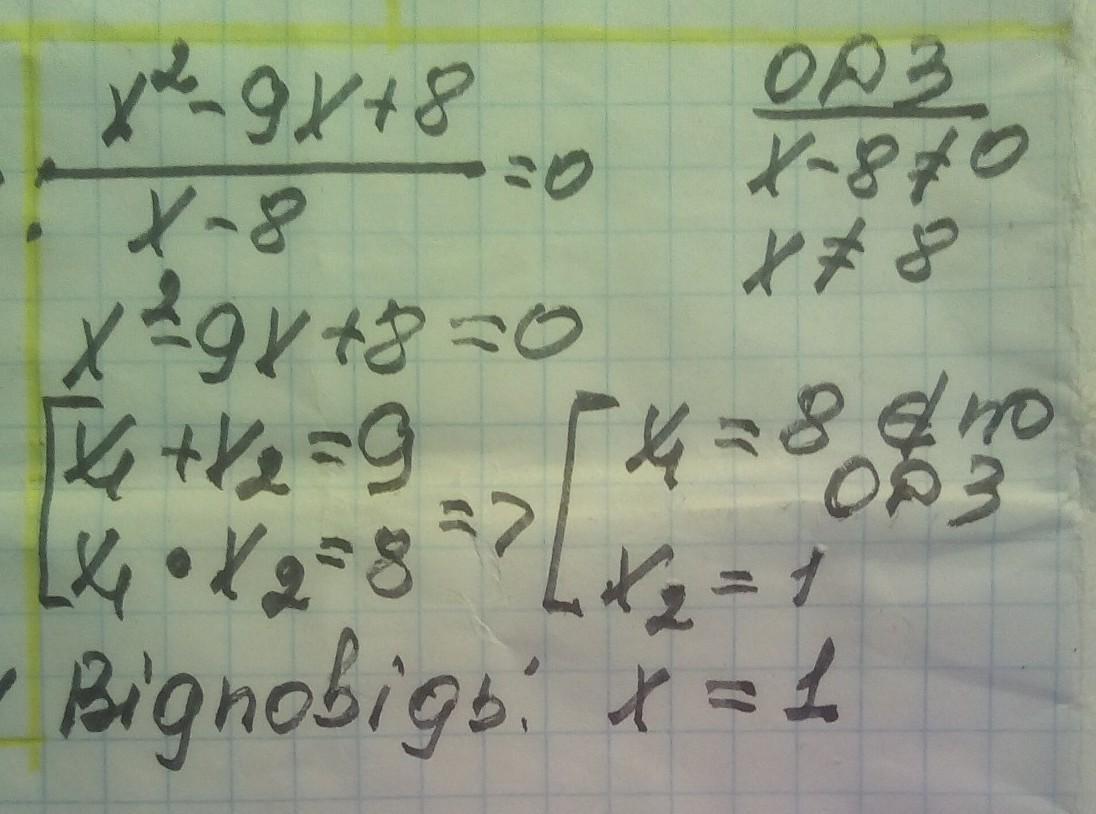 x² - 9x + 8
x - 8
= 0
ОДЗ
x - 8 ≠ 0
x ≠ 8
x² - 9x + 8 = 0
[ x₁ + x₂ = 9
x₁ • x₂ = 8
=>
[ x₁ = 8 ∉ по
ОДЗ
x₂ = 1
Відповідь: x = 1